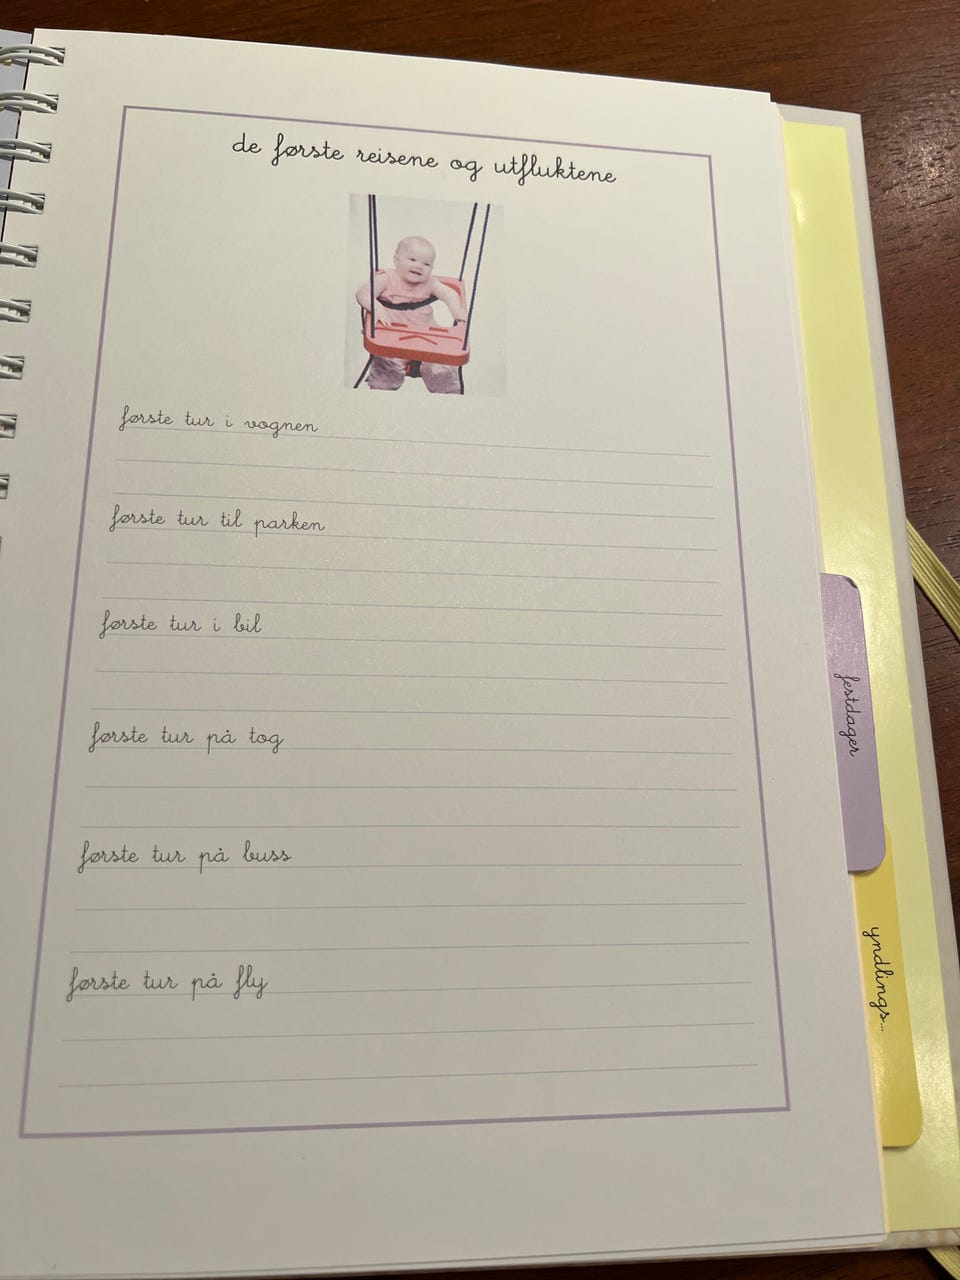 de første reisene og utfluktene
første tur i vognen
første tur til parken
første tur i bil
første tur på tog
første tur på buss
første tur på fly
festdager
yndlings...